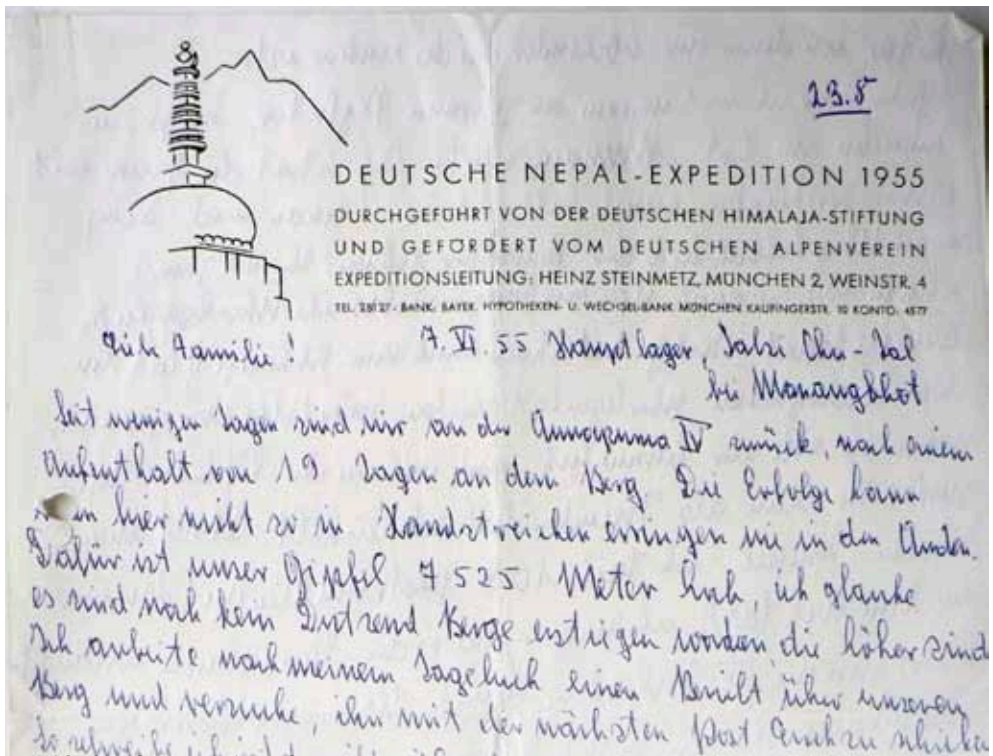 23.8
DEUTSCHE NEPAL-EXPEDITION 1955
DURCHGEFÜHRT VON DER DEUTSCHEN HIMALAJA-STIFTUNG
UND GEFÖRDERT VOM DEUTSCHEN ALPENVEREIN
EXPEDITIONSLEITUNG: HEINZ STEINMETZ, MÜNCHEN 2, WEINSTR. 4
BANK: BAYER. HYPOTHEKEN- U. WECHSEL-BANK MÜNCHEN KAUFINGERSTR. 10 KONTO: 4577
Liebe Familie! 7. VI. 55 Hauptlager, Sabzi Chu-Tal
bei Manangbhot
Seit wenigen Tagen sind wir an der Annapurna IV zurück, nach einem
Aufenthalt von 19 Tagen an dem Berg. Die Erfolge kann
man hier nicht so in Handstreichen erringen wie in den Anden.
Dafür ist unser Gipfel 7525 Meter hoch, ich glaube
es sind noch kein Dutzend Berge erstiegen worden die höher sind
Ich arbeite nach meinem Tagebuch einen Bericht über unseren
Berg und versuche, ihn mit der nächsten Post Euch zu schicken
So schreibe ich